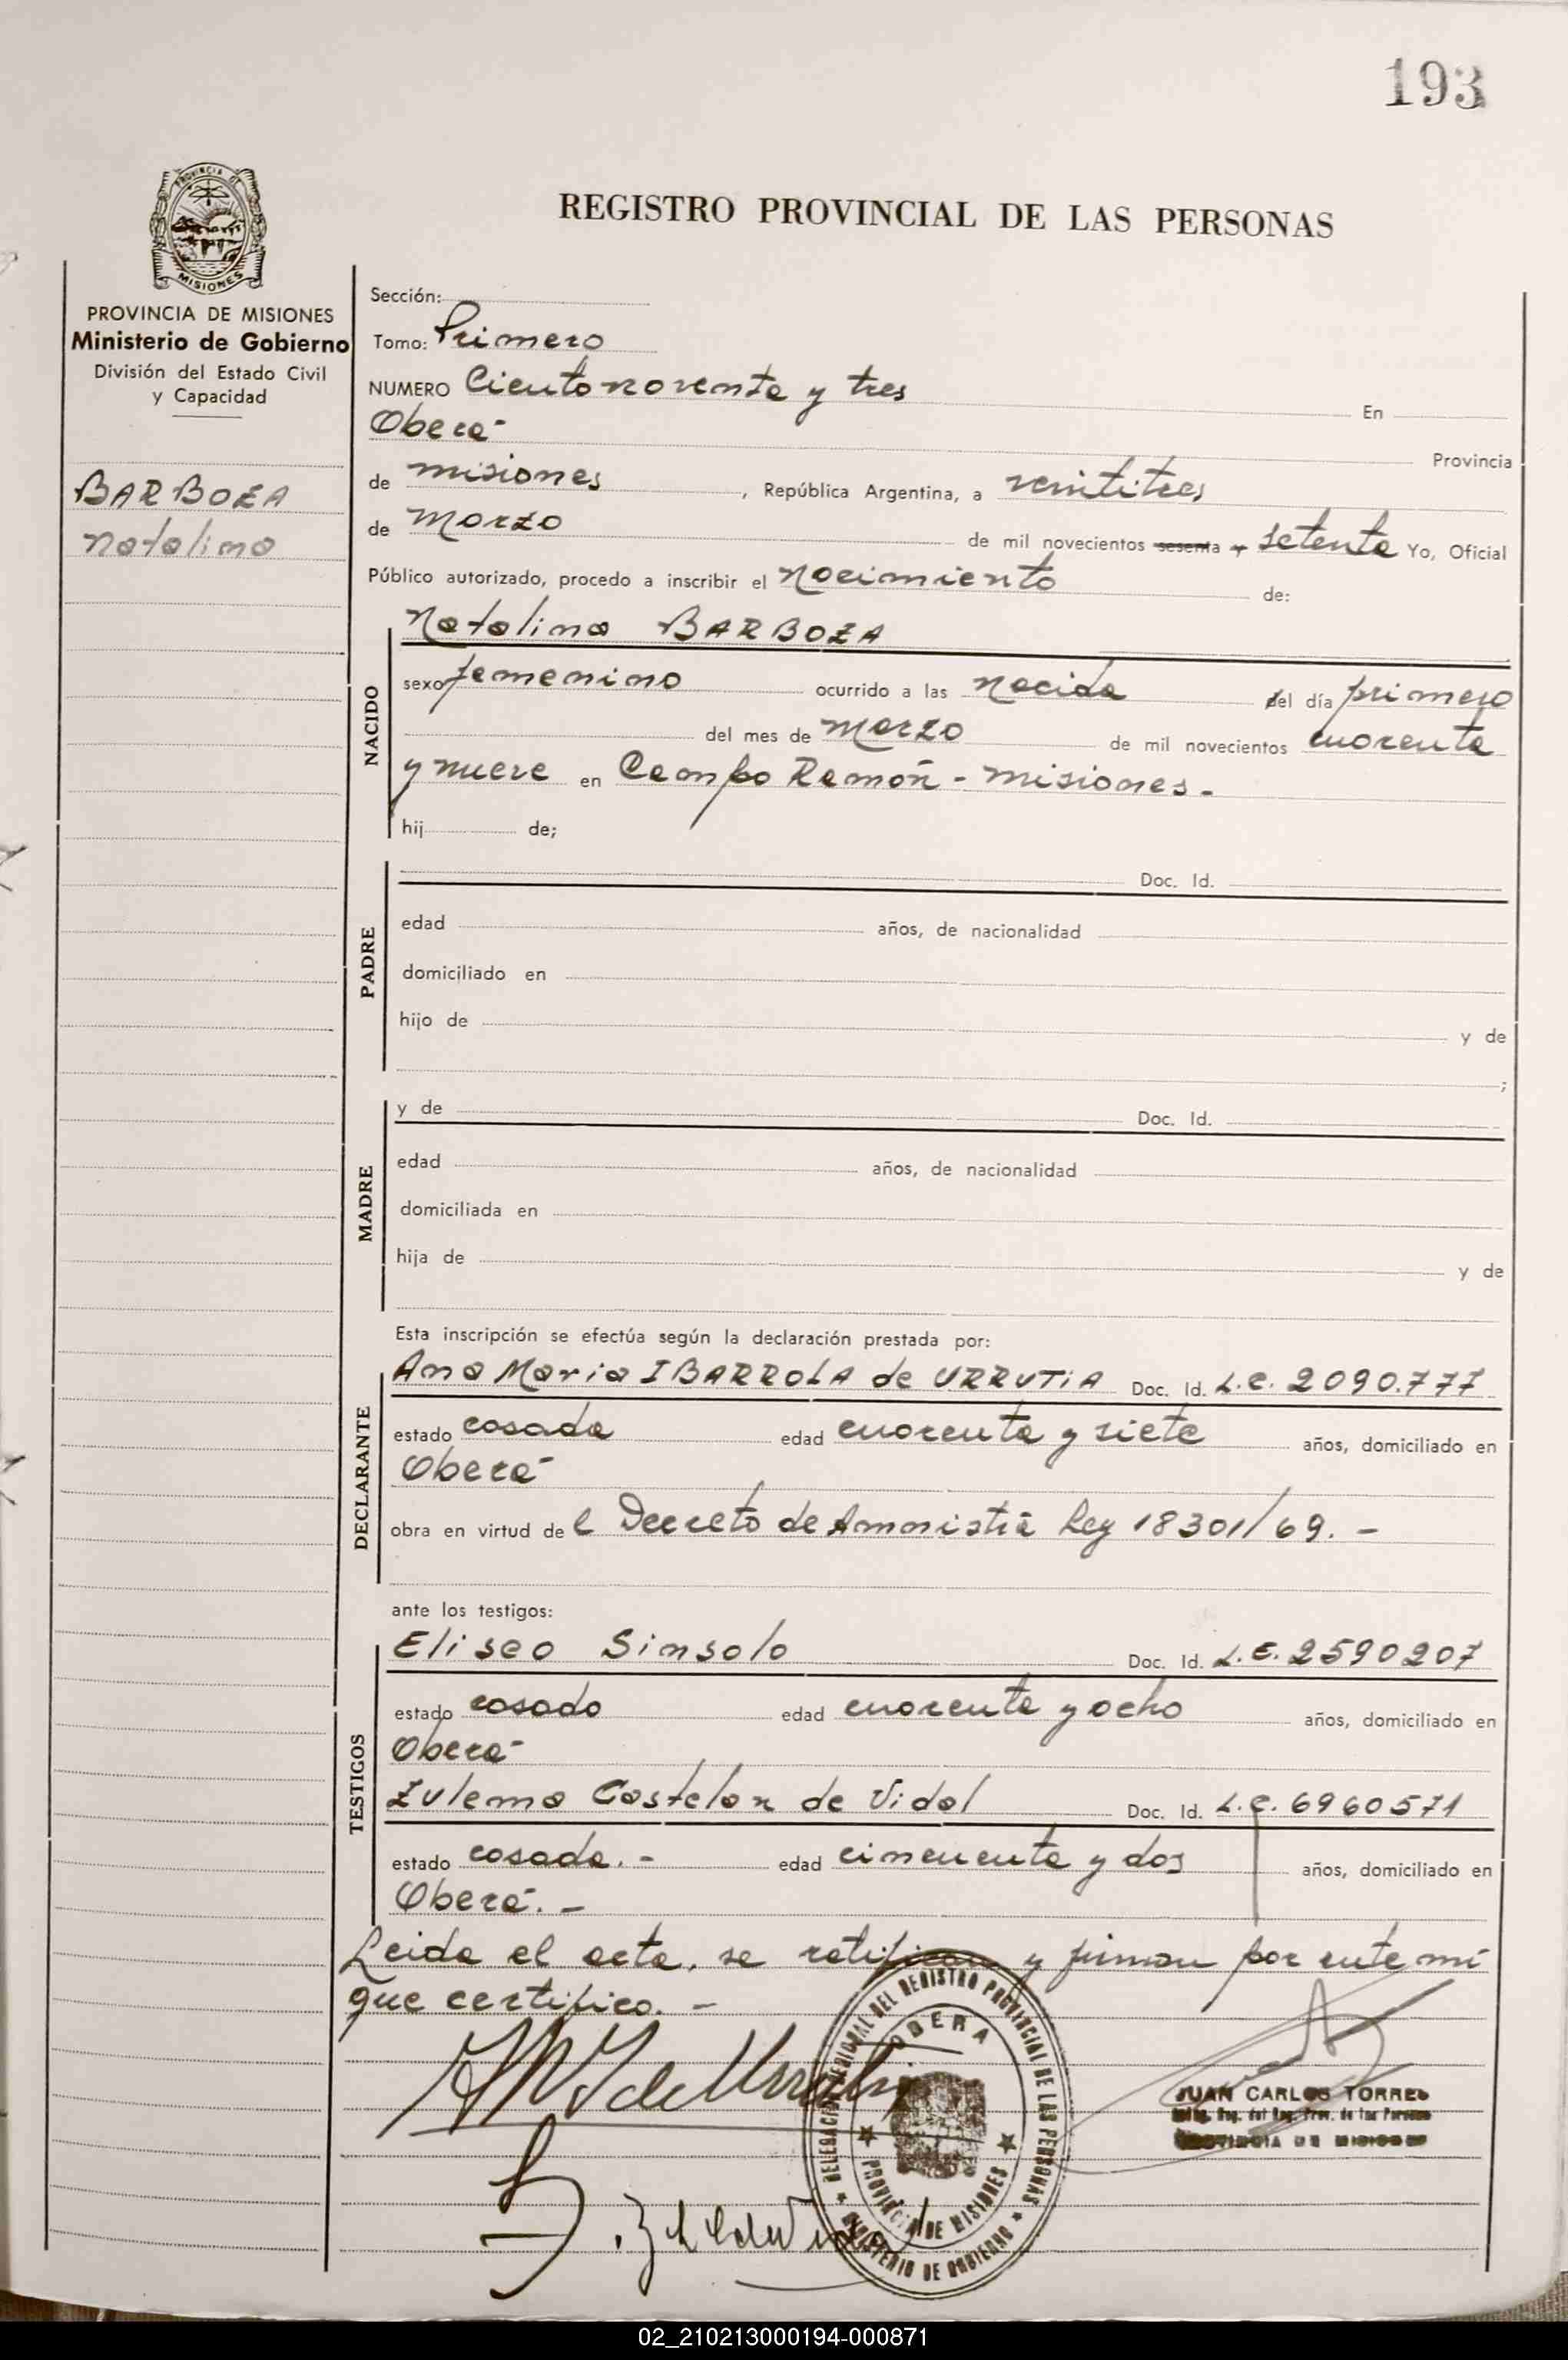 193
PROVINCIA DE MISIONES
REGISTRO PROVINCIAL DE LAS PERSONAS
PROVINCIA DE MISIONES
Ministerio de Gobierno
División del Estado Civil
y Capacidad
BARBOZA
Natalina
Sección:
Tomo: Primero
NUMERO Ciento noventa y tres En
Oberá
Provincia
de Misiones, República Argentina, a veintitres
de Marzo de mil novecientos sesenta y setenta Yo, Oficial
Público autorizado, procedo a inscribir el Nacimiento de:
NACIDO
Natalina BARBOZA
sexo femenino ocurrido a las Nacida del día primero
del mes de Marzo de mil novecientos cuarenta
y nueve en Campo Ramón - Misiones.-
hij de;
PADRE
Doc. Id.
edad años, de nacionalidad
domiciliado en
hijo de y de
;
MADRE
y de Doc. Id.
edad años, de nacionalidad
domiciliada en
hija de y de
Esta inscripción se efectúa según la declaración prestada por:
DECLARANTE
Ana Maria IBARROLA de URRUTIA Doc. Id. L.C. 2090.777
estado casada edad cuarenta y siete años, domiciliado en
Oberá
obra en virtud del Decreto de Amnistia Ley 18301/69.-
ante los testigos:
TESTIGOS
Eliseo Sinsolo Doc. Id. L.E. 2590207
estado casado edad cuarenta y ocho años, domiciliado en
Oberá
Zulema Castelan de Vidal Doc. Id. L.C. 6960571
estado casada.- edad cincuenta y dos años, domiciliado en
Oberá.-
Leida el acta, se ratifican y firman por ante mí
que certifico.-
DELEGACION REGIONAL DEL REGISTRO PROVINCIAL DE LAS PERSONAS
OBERA
PROVINCIA DE MISIONES
MINISTERIO DE GOBIERNO
JUAN CARLOS TORRES
Reg. del Reg. Prov. de las Personas
PROVINCIA DE MISIONES
02_210213000194-000871